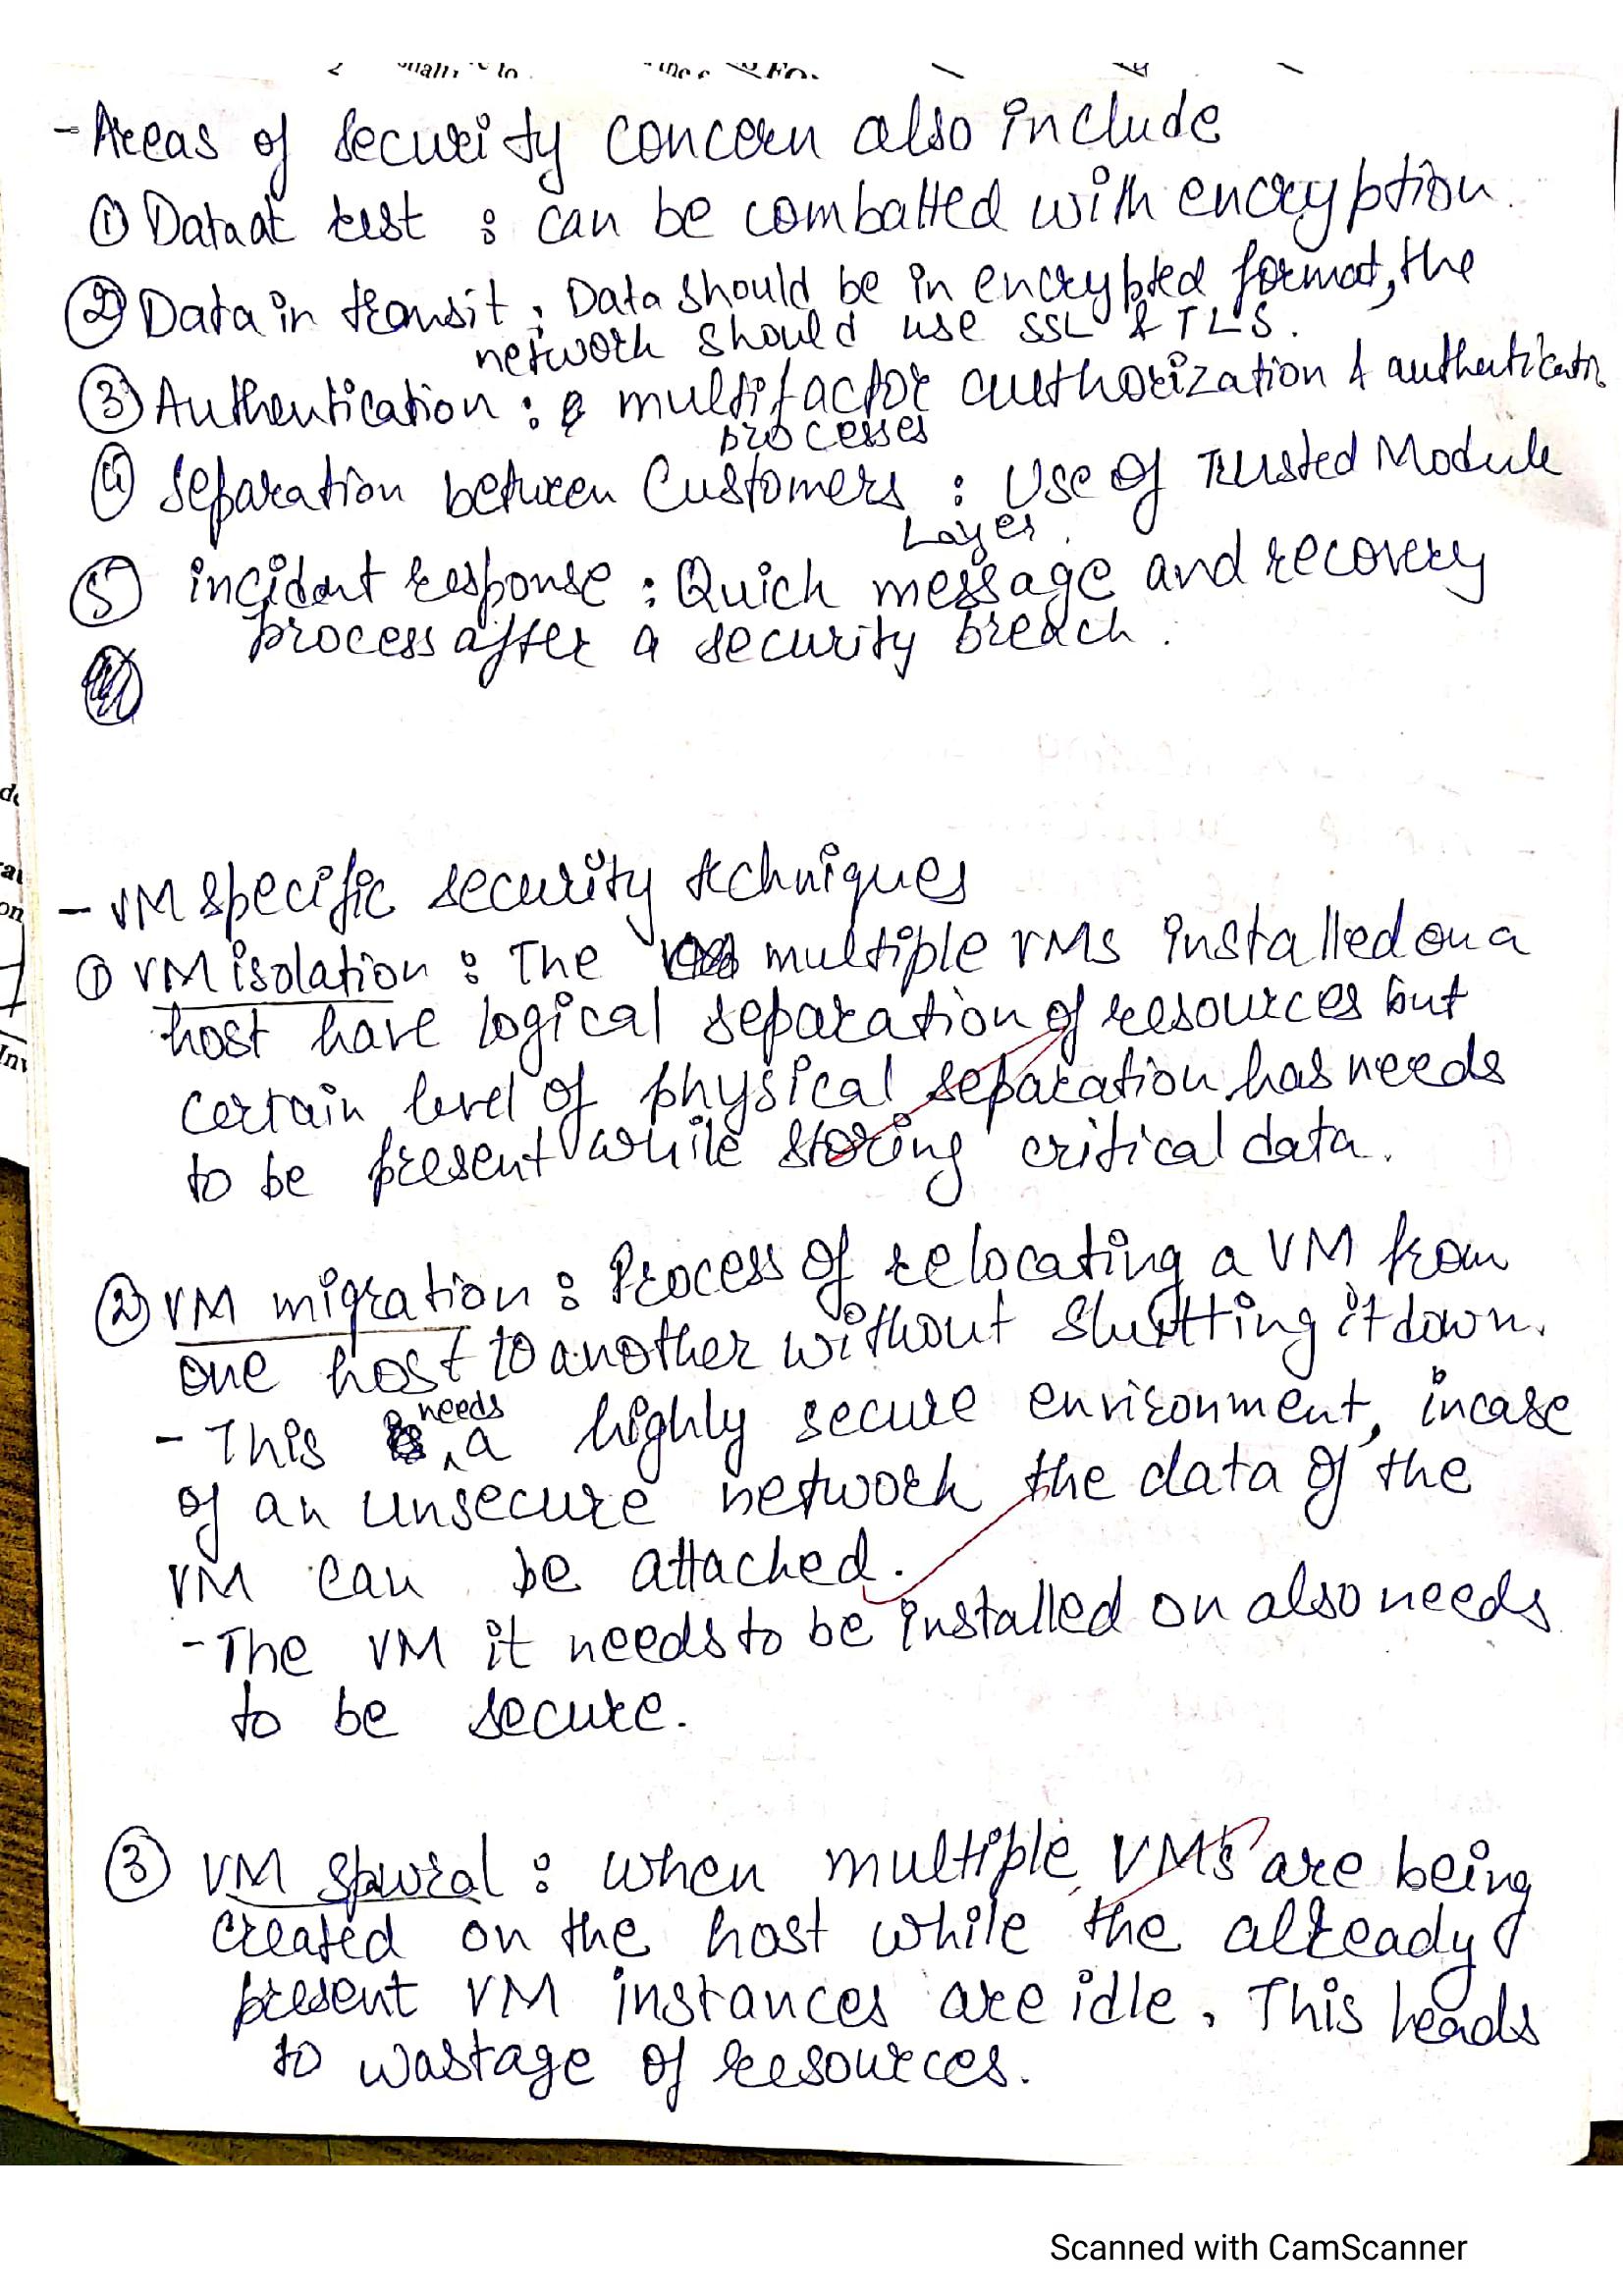 - Areas of security concern also include
① Data at rest : can be combatted with encryption.
② Data in transit : Data should be in encrypted format, the
network should use SSL & TLS.
③ Authentication : multifactor authorization & authenticatn
processes
④ Separation between Customers : Use of Trusted Module
Layer.
⑤ incident response : Quick message and recovery
process after a security breach.
- VM specific security techniques
① VM isolation : The multiple VMs installed on a
host have logical separation of resources but
certain level of physical separation has needs
to be present while storing critical data.
② VM migration : Process of relocating a VM from
one host to another without shutting it down.
- This needs a highly secure environment, incase
of an unsecure network the data of the
VM can be attacked.
- The VM it needs to be installed on also needs
to be secure.
③ VM Spwral : when multiple VMs are being
created on the host while the already
present VM instances are idle. This leads
to wastage of resources.
Scanned with CamScanner